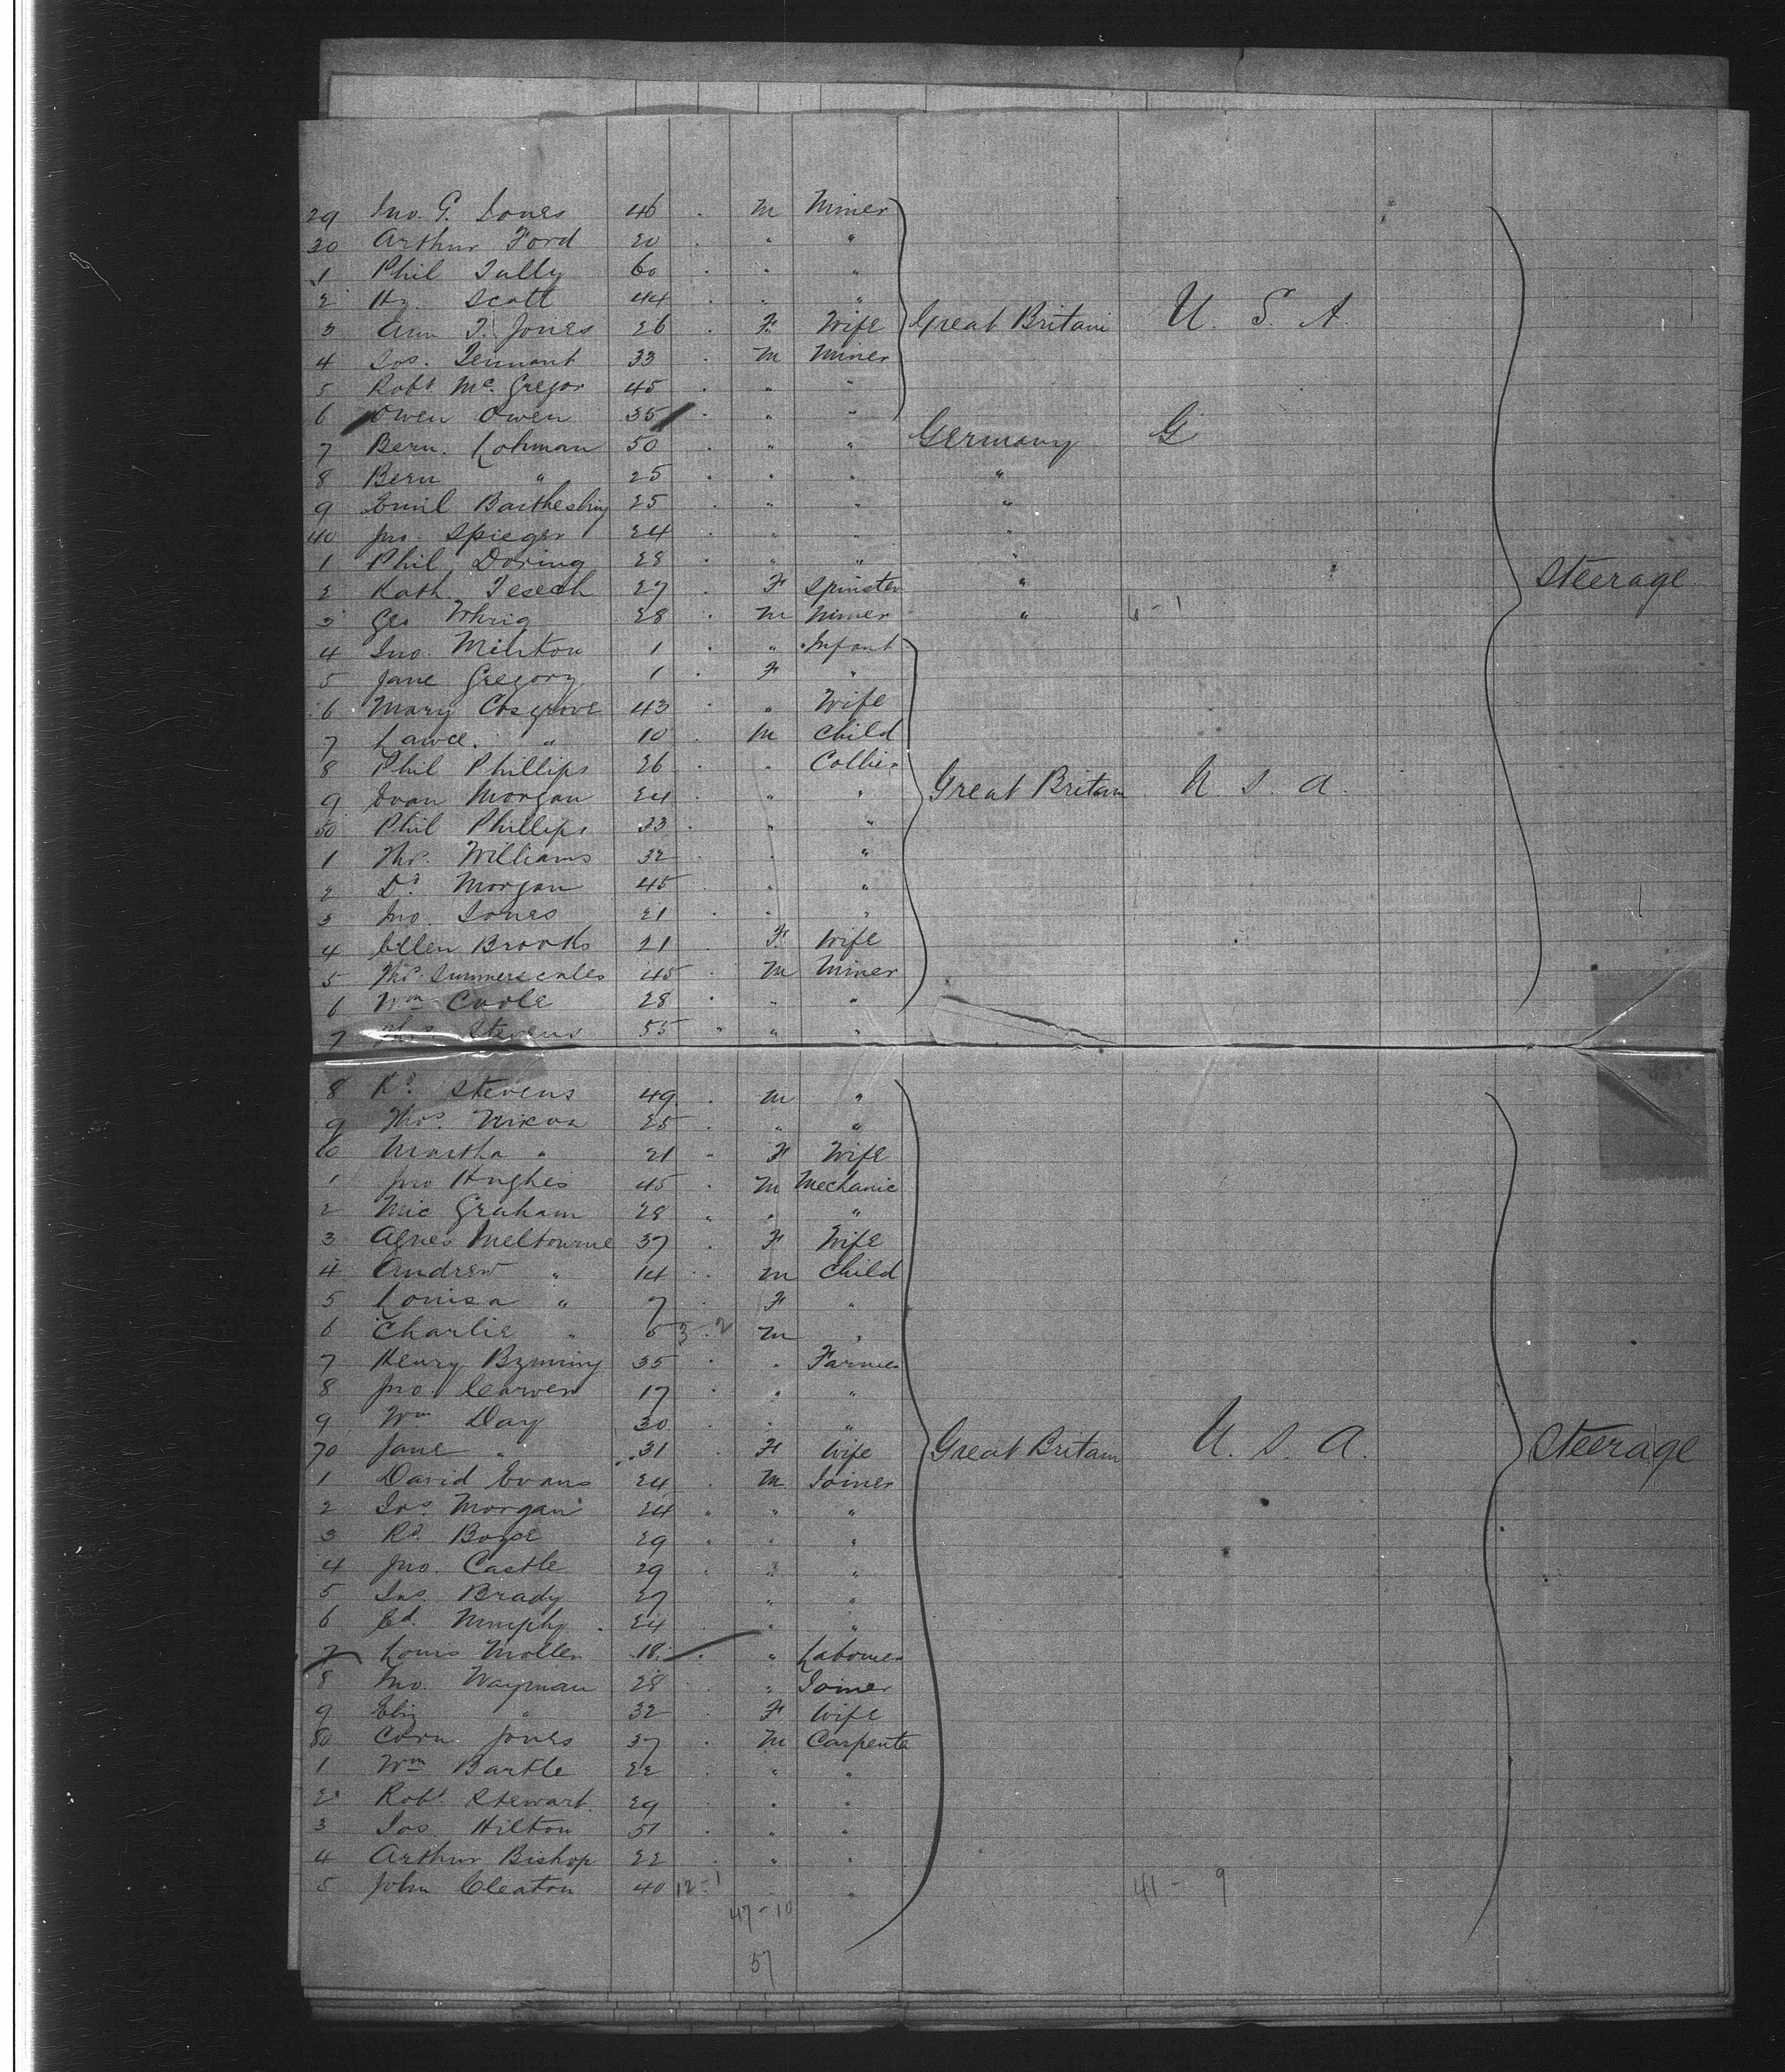 29 Jno. G. Jones 46 . M Miner
30 Arthur Ford 20 . " "
1 Phil Tully 60 . " "
2 Hy. Scott 44 . " "
3 Ann T. Jones 26 . F. Wife Great Britain U. S. A
4 Jos. Tennant 33 . M Miner
5 Robt. Mc. Gregor 45 . " "
6 Owen Owen 35 . " "
7 Bern. Lohman 50 . " " Germany G
8 Bern " 25 . " " "
9 Emil 25 . " " "
40 Jno. Spieger 24 " " "
1 Phil Doring 28 . " " "
2 Kath. Tesech 27 . F Spinster "
3 Geo 28 . M Miner " 6-1
4 Jno. 1 . " Infant
5 Jane Gregory 1 . F "
6 Mary Cosgrove 43 . " Wife
7 Lawce. " 10 . M Child
8 Phil Phillips 26 . " Collier
9 Evan Morgan 24 . " " Great Britain U. S. A.
50 Phil Phillips 33 . " "
1 Tho. Williams 32 . " "
2 Dd. Morgan 45 . " "
3 Jno Jones 21 . " "
4 Ellen Brooks 21 . F. Wife
5 Tho. Summerscales 45 . M Miner
6 Wm Coole 28 . " "
7 Tho Stevens 55 " " "
8 Rd. Stevens 49 . M "
9 Thos. Nixon 25 . " "
60 Martha " 21 " F Wife
1 Jno Hughes 45 . M Mechanic
2 Mic Graham 28 " " "
3 Agnes Melbourne 37 . F Wife
4 Andrew " 14 . M Child
5 Louisa " 7 . F "
6 Charlie " 5 3.2 M "
7 Henry 35 . " Farmer
8 Jno. 17 . " "
9 Wm Day 30 . " "
70 Jane " 31 . F Wife Great Britain U. S. A. Steerage
1 David Evans 24 . M Joiner
2 Jos Morgan 24 " " "
3 Rd. Boyce 29 . " "
4 Jno. Castle 29 . " "
5 Jas. Brady 27 " "
6 Ed. Murphy . 24 . " "
7 Louis Moller 18. . " Labourer
8 Jno. Wayman 28 . " Joiner
9 Eliz " 32 . F Wife
80 Corn. Jones 37 . M Carpenter
1 Wm Bartle 22 . " "
2 Robt. Stewart. 29 . " "
3 Jos Hilton 51 . " "
4 Arthur Bishop 22 . " "
5 John Cleaton 40 12-1 " 41-9
47-10
57
Steerage